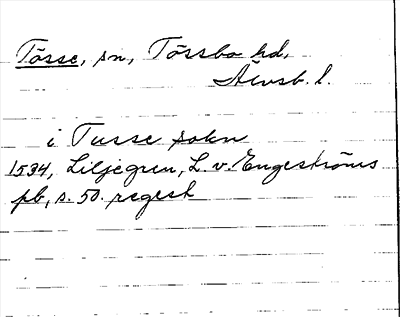 Tösse, sn, Tössbo hd,
Älvsb. l.
i Tusse sokn
1534, Liljegren, L. v. Engeströms
pb, s. 50. regest